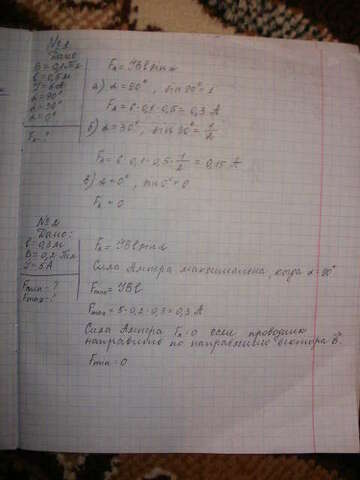 №1
Дано
B = 0,1 Тл
l = 0,5 м
I = 6 А
α = 90°
α = 30°
α = 0°
Fₐ - ?
Fₐ = IBl sin α
а) α = 90°, sin 90° = 1
Fₐ = 6 · 0,1 · 0,5 = 0,3 А
б) α = 30°, sin 30° = 1/2
Fₐ = 6 · 0,1 · 0,5 · 1/2 = 0,15 А
в) α = 0°, sin 0° = 0
Fₐ = 0
№2
Дано:
l = 0,3 м
B = 0,2 Тл
I = 5 А
Fmin - ?
Fmax - ?
Fₐ = IBl sin α
Сила Ампера максимальна, когда α = 90°
Fmax = IBl
Fmax = 5 · 0,2 · 0,3 = 0,3 А
Сила Ампера Fₐ = 0 если проводник
направлено по направлению вектора B⃗.
Fmin = 0